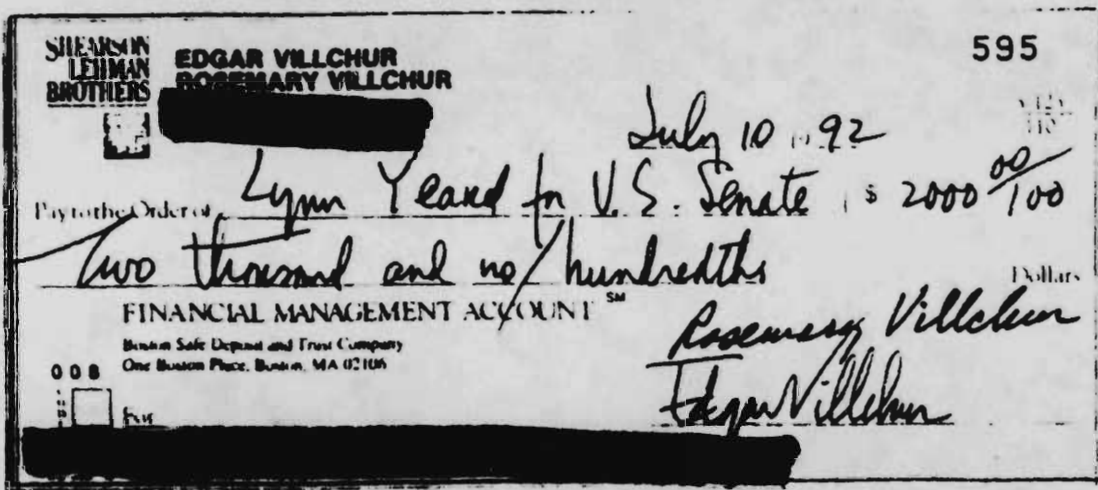 SHEARSON
LEHMAN
BROTHERS
EDGAR VILLCHUR
ROSEMARY VILLCHUR
595
July 10 19 92
Pay to the Order of Lynn Yeand for U.S. Senate $ 2000 00/100
Two thousand and no/hundredths Dollars
FINANCIAL MANAGEMENT ACCOUNT SM
Boston Safe Deposit and Trust Company
One Boston Place, Boston, MA 02106
Rosemary Villchur
008
For Edgar Villchur